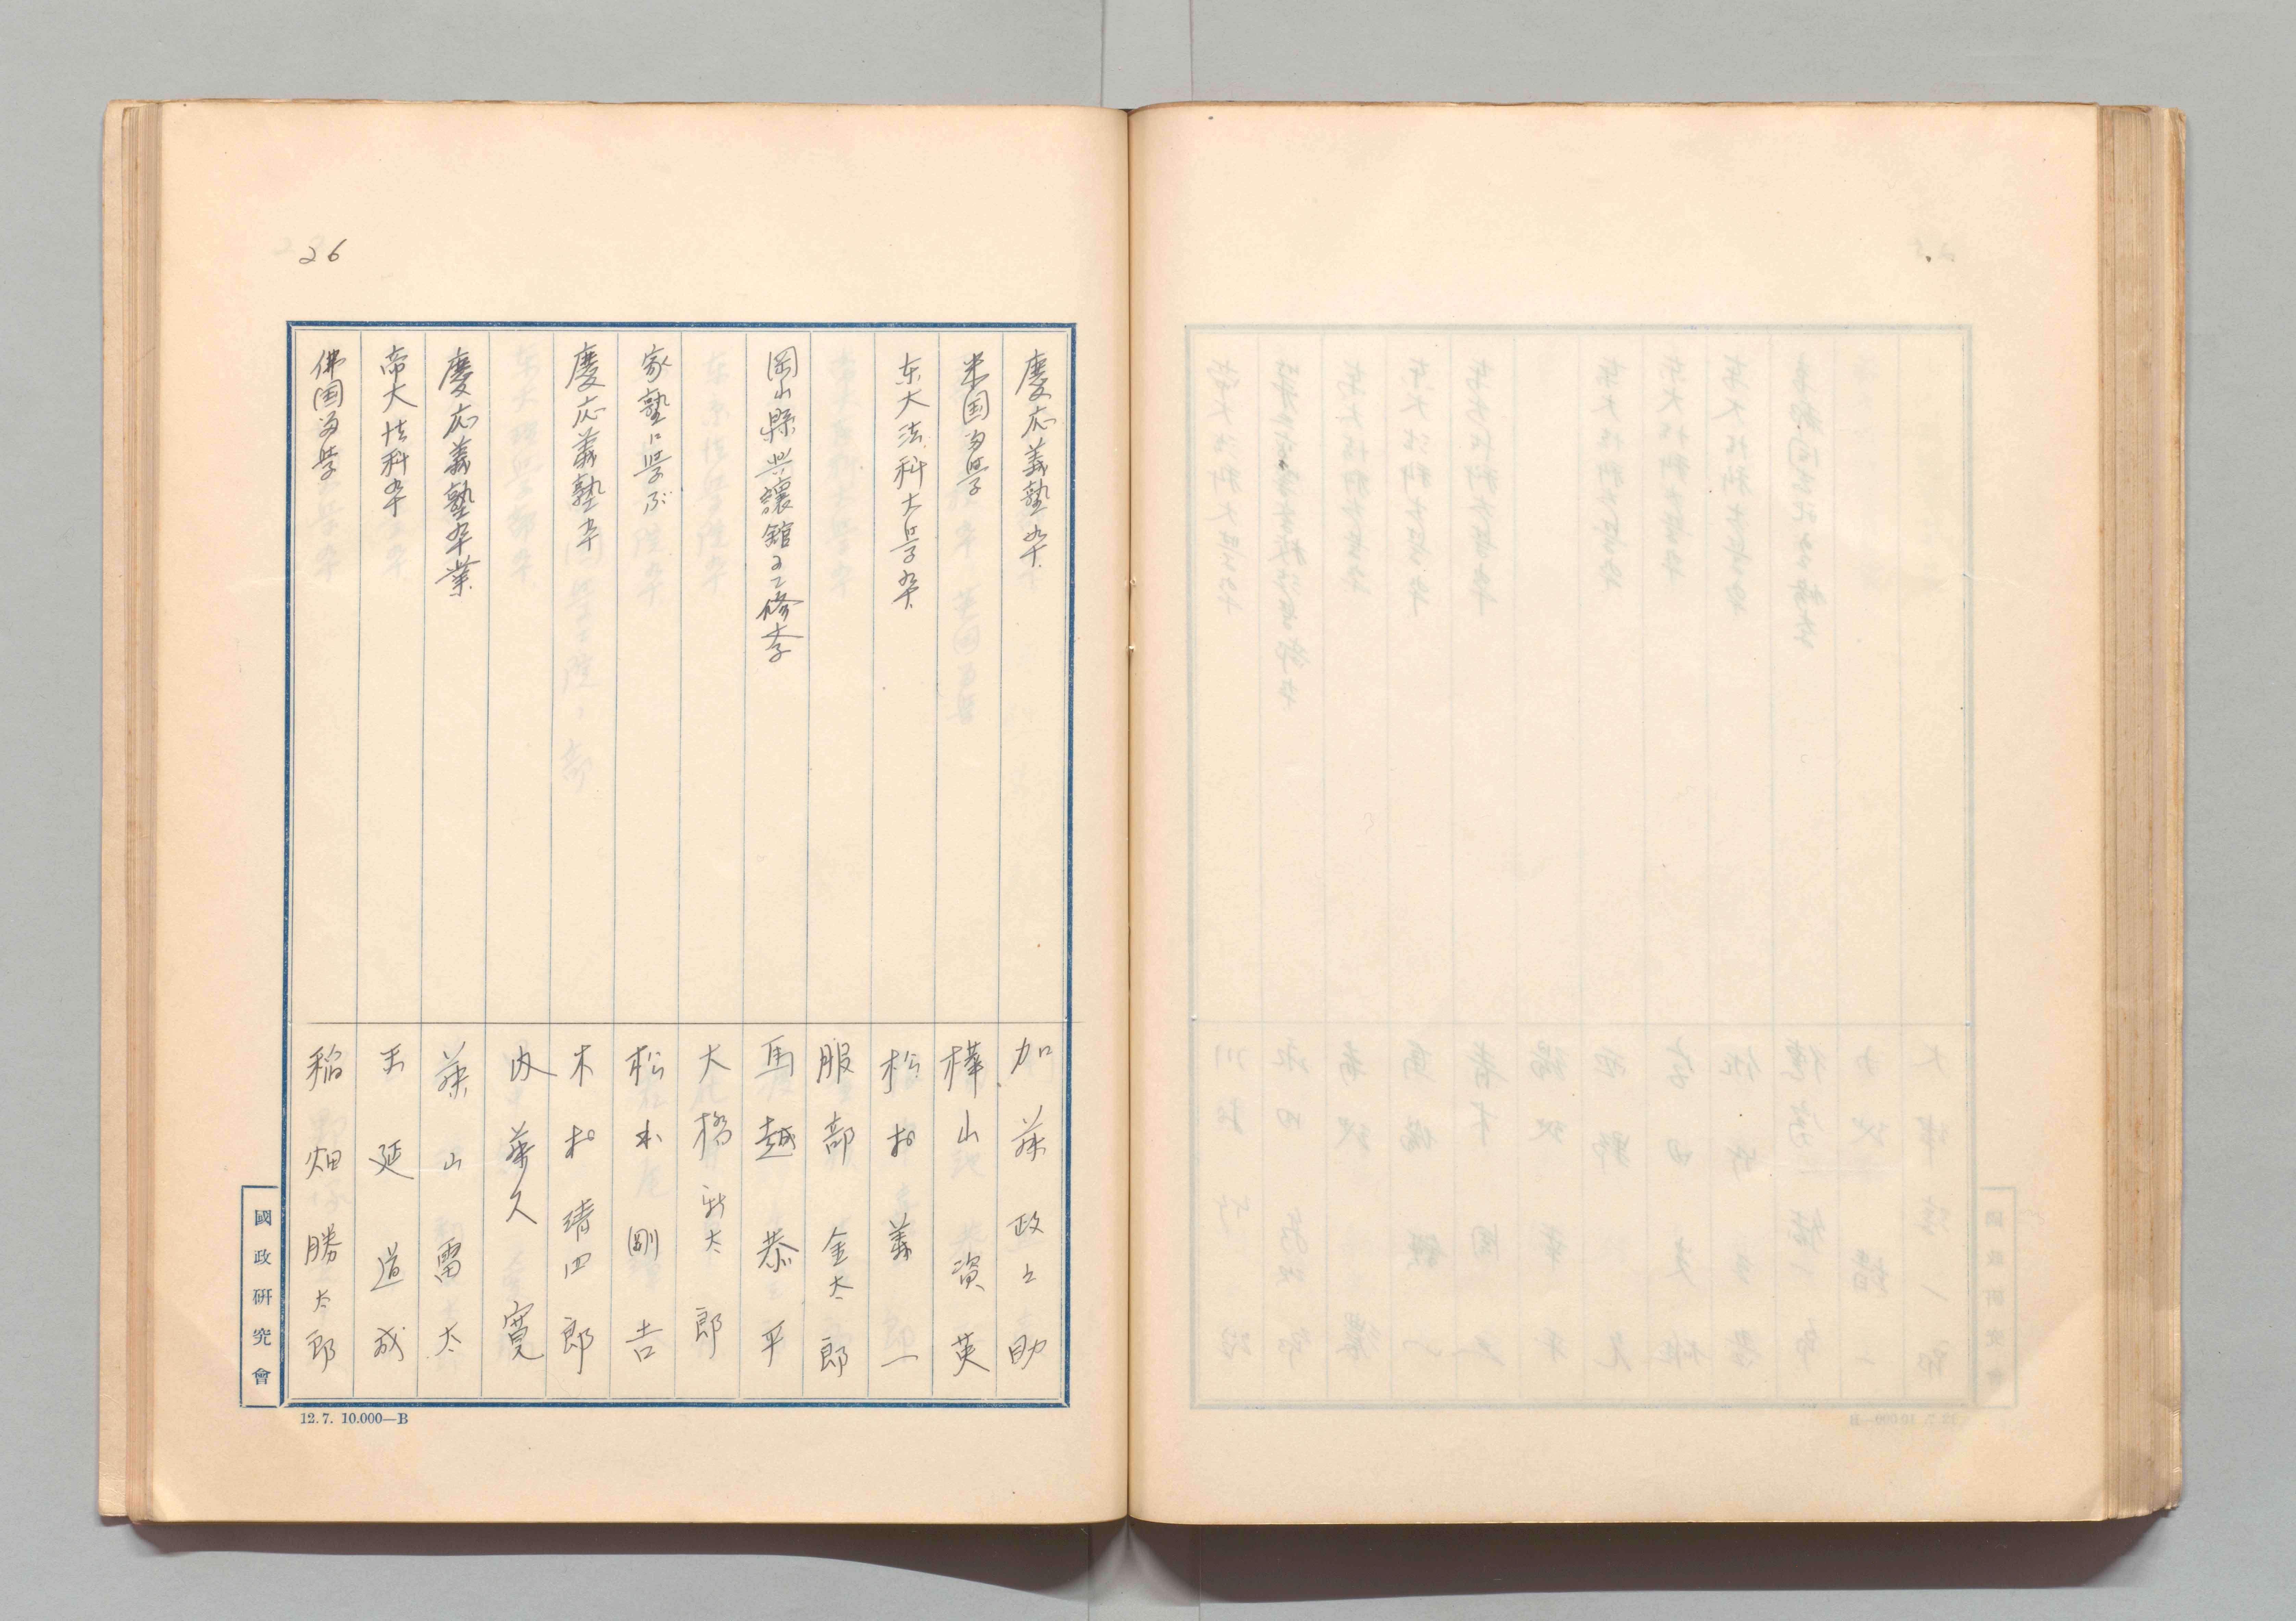 26
慶応義塾卒
加藤政之助
米国留学
樺山資英
東大法科大学卒
松村義一
服部金太郎
岡山縣興譲館ニテ修学
馬越恭平
大橋新太郎
家塾ニ学ぶ
松本剛吉
慶応義塾卒
木村清四郎
内藤久寛
慶応義塾卒業
藤山雷太
帝大法科卒
王延道成
佛国留学
稲畑勝太郎
國政研究會
12.7. 10.000—B